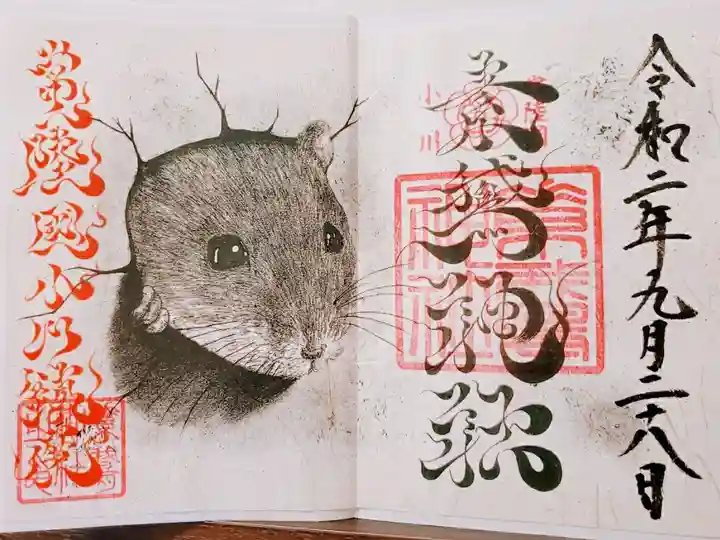 令和二年九月二十八日
素鵞神社
常陸國小川鎮
小川